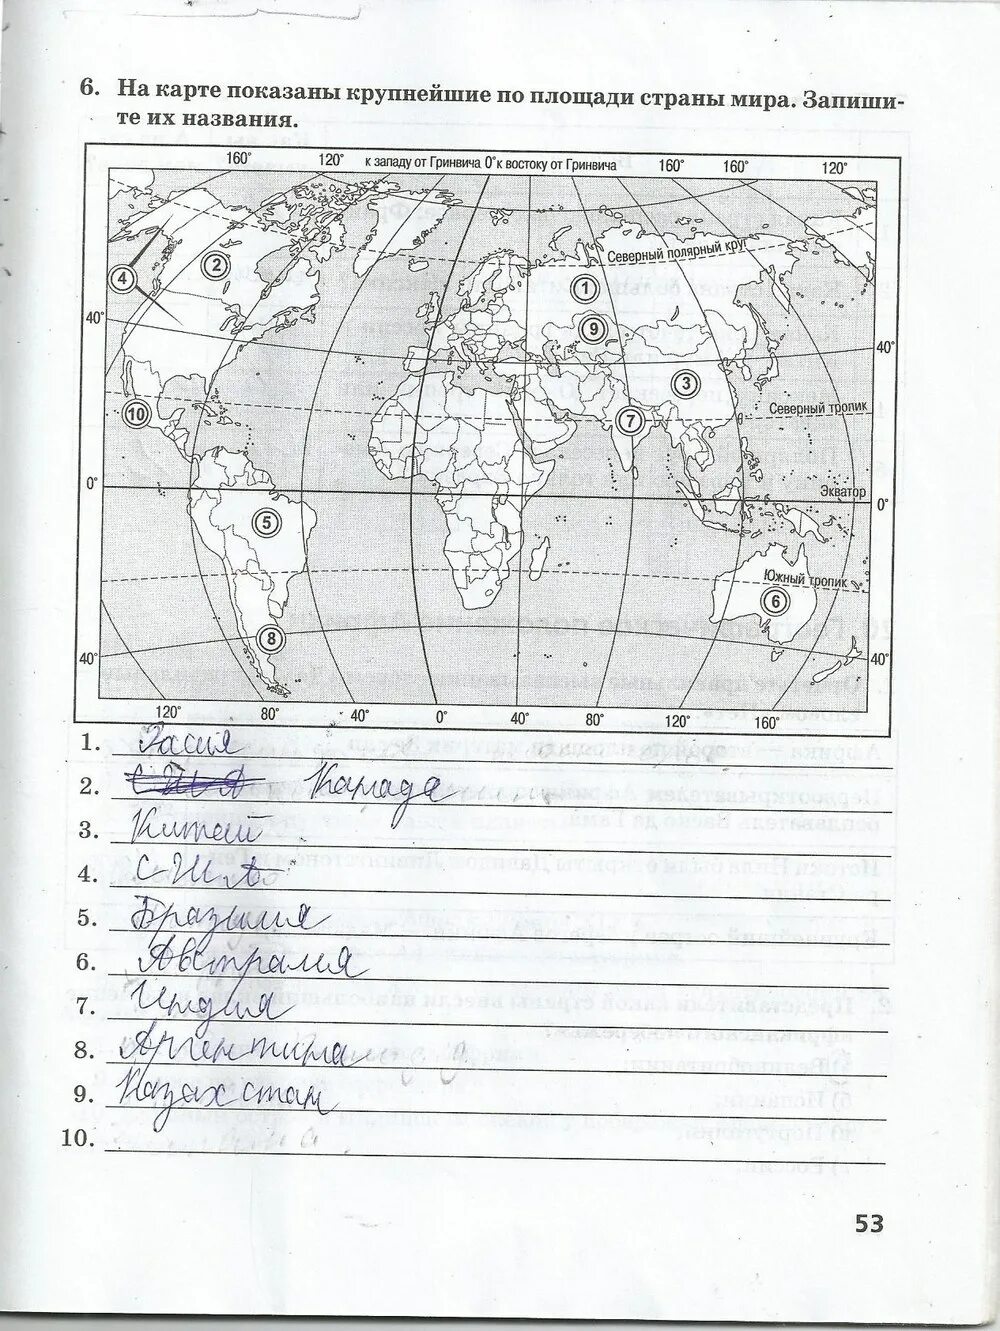 6. На карте показаны крупнейшие по площади страны мира. Запиши-
те их названия.
160° 120° к западу от Гринвича 0° к востоку от Гринвича 160° 160° 120°
Северный полярный круг
2
4
1
9
40°
40°
3
10
Северный тропик
7
0°
Экватор
0°
5
Южный тропик
6
8
40°
40°
120° 80° 40° 0° 40° 80° 120° 160°
1. Россия
2. США Канада
3. Китай
4. США
5. Бразилия
6. Австралия
7. Индия
8. Аргентина
9. Казахстан
10.
53